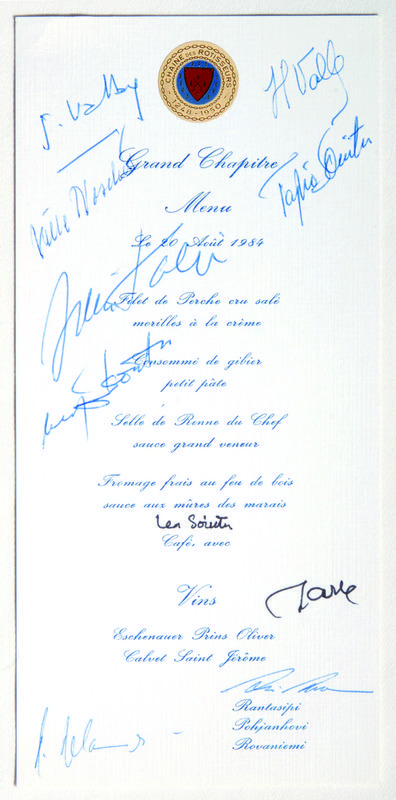 CHAINE DES ROTISSEURS
1248-1950
Grand Chapitre
Menu
Le 20 Août 1984
Filet de Perche cru salé
morilles à la crème
Consommé de gibier
petit pâte
Selle de Renne du Chef
sauce grand veneur
Fromage frais au feu de bois
sauce aux mûres des marais
Café, avec
Vins
Eschenauer Prins Oliver
Calvet Saint Jérôme
Rantasipi
Pohjanhovi
Rovaniemi